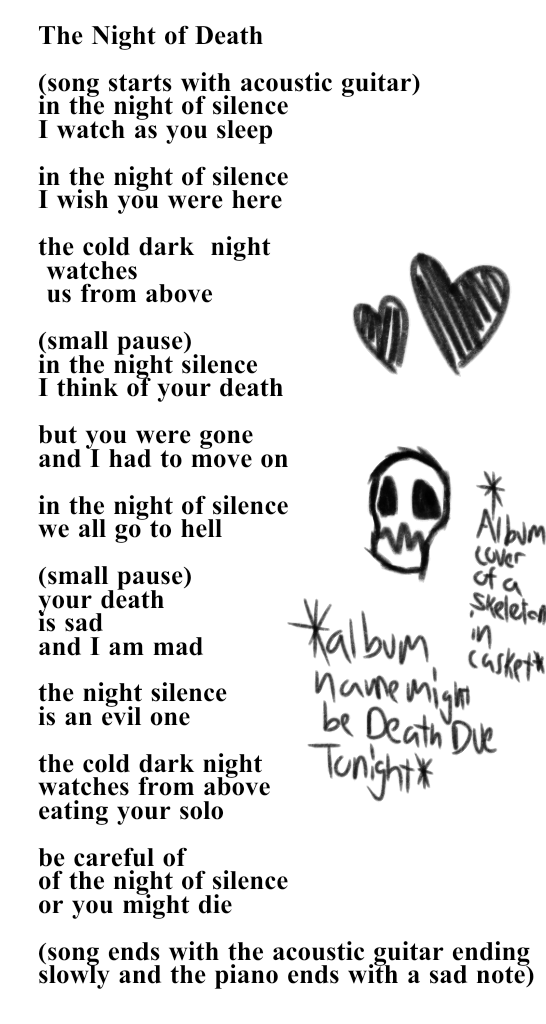 The Night of Death
(song starts with acoustic guitar)
in the night of silence
I watch as you sleep
in the night of silence
I wish you were here
the cold dark night
watches
us from above
(small pause)
in the night silence
I think of your death
but you were gone
and I had to move on
in the night of silence
we all go to hell
(small pause)
your death
is sad
and I am mad
the night silence
is an evil one
the cold dark night
watches from above
eating your solo
be careful of
of the night of silence
or you might die
(song ends with the acoustic guitar ending
slowly and the piano ends with a sad note)
*
Album
cover
of a
skeleton
in
casket*
*album
name might
be Death Due
Tonight*